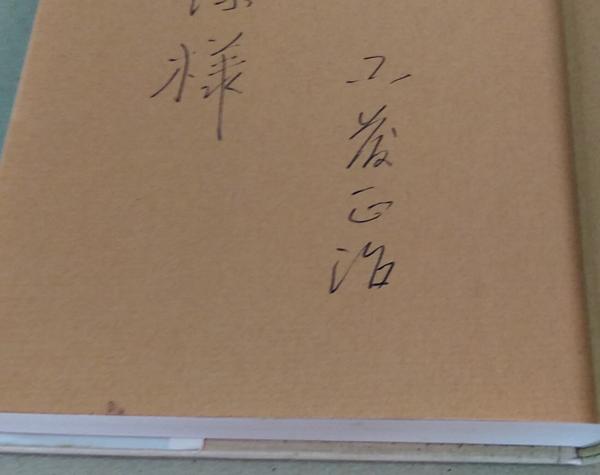 工藤正治
様